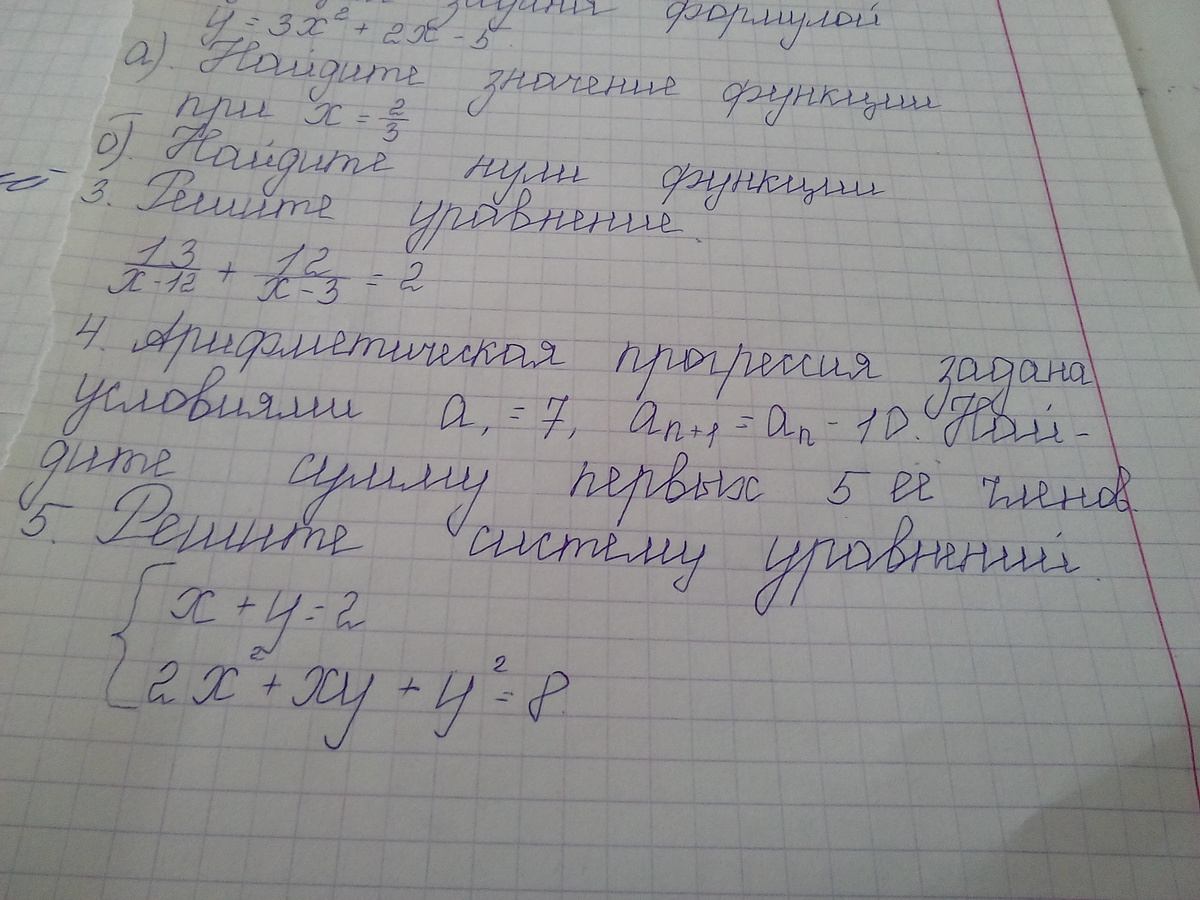 задана формулой
y = 3x² + 2x - 5.
а). Найдите значение функции
при x = 2/3
б). Найдите нули функции
3. Решите уравнение.
13/(x-12) + 12/(x-3) = 2
4. Арифметическая прогрессия задана
условиями a₁ = 7, aₙ₊₁ = aₙ - 10. Най-
дите сумму первых 5 её членов.
5. Решите систему уравнений.
{ x + y = 2
2x² + xy + y² = 8.